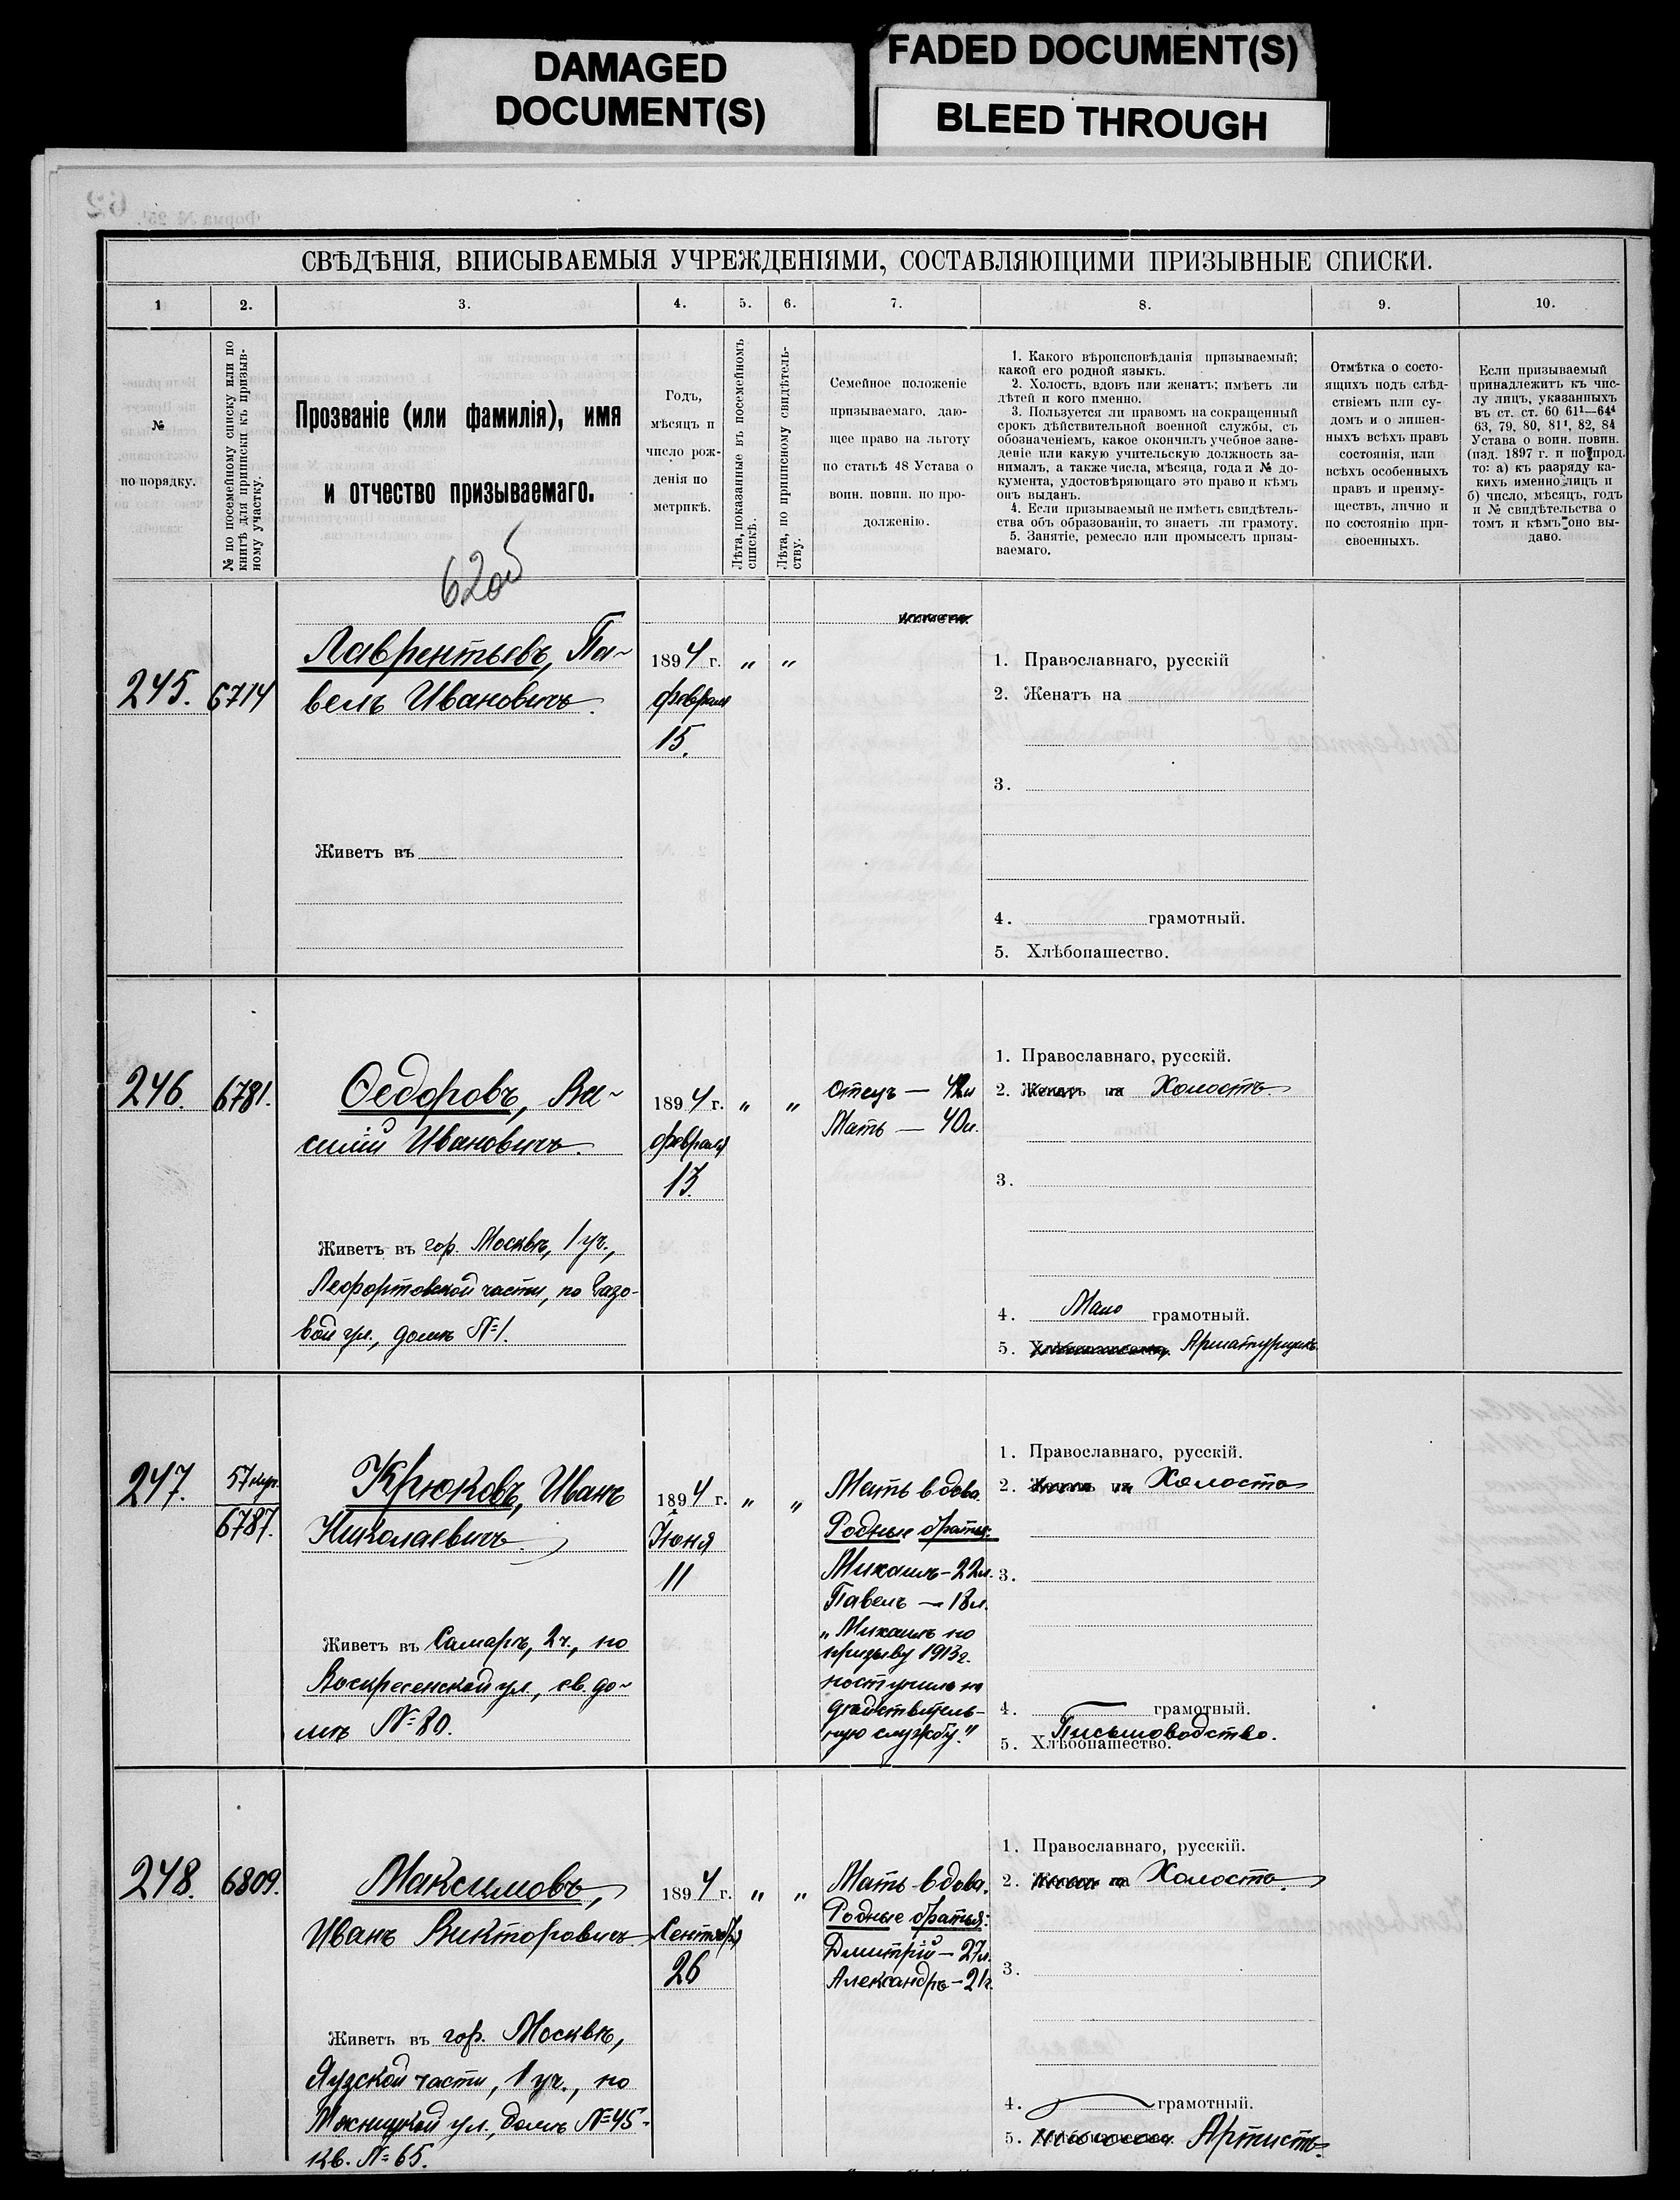 DAMAGED
DOCUMENT(S)
FADED DOCUMENT(S)
BLEED THROUGH
СВѢДѢНІЯ, ВПИСЫВАЕМЫЯ УЧРЕЖДЕНІЯМИ, СОСТАВЛЯЮЩИМИ ПРИЗЫВНЫЕ СПИСКИ.
1
2.
3.
4.
5.
6.
7.
8.
9.
10.
№
по порядку.
№ по посемейному списку или по
книгѣ для приписки къ призыв-
ному участку.
Прозваніе (или фамилія), имя
и отчество призываемаго.
62об
Годъ,
мѣсяцъ и
число рож-
денія по
метрикѣ.
Лѣта, показанные въ посемейномъ
спискѣ.
Лѣта, по приписному свидѣтель-
ству.
Семейное положеніе
призываемаго, даю-
щее право на льготу
по статьѣ 48 Устава о
воин. повин. по про-
долженію.
1. Какого вѣроисповѣданія призываемый;
какой его родной языкъ.
2. Холостъ, вдовъ или женатъ; имѣетъ ли
дѣтей и кого именно.
3. Пользуется ли правомъ на сокращенный
срокъ дѣйствительной военной службы, съ
обозначеніемъ, какое окончилъ учебное заве-
деніе или какую учительскую должность за-
нималъ, а также числа, мѣсяца, года и № до-
кумента, удостовѣряющаго это право и кѣмъ
онъ выданъ.
4. Если призываемый не имѣетъ свидѣтель-
ства объ образованіи, то знаетъ ли грамоту.
5. Занятіе, ремесло или промыселъ призы-
ваемаго.
Отмѣтка о состо-
ящихъ подъ слѣд-
ствіемъ или су-
домъ и о лишен-
ныхъ всѣхъ правъ
состоянія, или
всѣхъ особенныхъ
правъ и преиму-
ществъ, лично и
по состоянію при-
своенныхъ.
Если призываемый
принадлежитъ къ чис-
лу лицъ, указанныхъ
въ ст. ст. 60 61¹—64⁴
63, 79, 80, 81¹, 82, 84
Устава о воин. повин.
(изд. 1897 г. и по прод.
то: а) къ разряду ка-
кихъ именно лицъ и
б) число, мѣсяцъ, годъ
и № свидѣтельства о
томъ и кѣмъ оно вы-
дано.
245.
6714
Лаврентьевъ, Па-
велъ Ивановичъ.
Живетъ въ
1894 г.
февраля
15.
„
„
1. Православнаго, русскій
2. Женатъ на
3.
4. грамотный.
5. Хлѣбопашество.
246.
6781.
Ѳедоровъ, Ва-
силій Ивановичъ.
Живетъ въ гор. Москвѣ, 1 уч.,
Лефортовской части, по Газо-
вой ул., домъ №1.
1894 г.
февраля
13.
„
„
Отецъ — 42л
Мать — 40л.
1. Православнаго, русскій.
2. Женатъ на Холостъ.
3.
4. Мало грамотный.
5. Арматурщикъ
247.
6787.
Крюковъ, Иванъ
Николаевичъ.
Живетъ въ Самарѣ, 2ч., по
Воскресенской ул., св. до-
мъ № 80.
1894 г.
Іюня
11
„
„
Мать вдова.
Родные братья:
Михаилъ - 22л.
Павелъ — 18л.
„Михаилъ по
призыву 1913г.
поступилъ на
дѣйствитель-
ную службу."
1. Православнаго, русскій.
2. Женатъ на Холостъ
3.
4. грамотный.
Письмоводство.
5. Хлѣбопашество.
248.
6809.
Максимовъ,
Иванъ Викторовичъ
Живетъ въ гор. Москвѣ,
Яузской части, 1 уч., по
ул., домъ №45-
кв. № 65.
1894 г.
Сентября
26
„
„
Мать-вдова.
Родные братья:
Дмитрій — 27л.
Александръ - 21г.
1. Православнаго, русскій.
2. Женатъ на Холостъ.
3.
4. грамотный.
5. Артистъ.